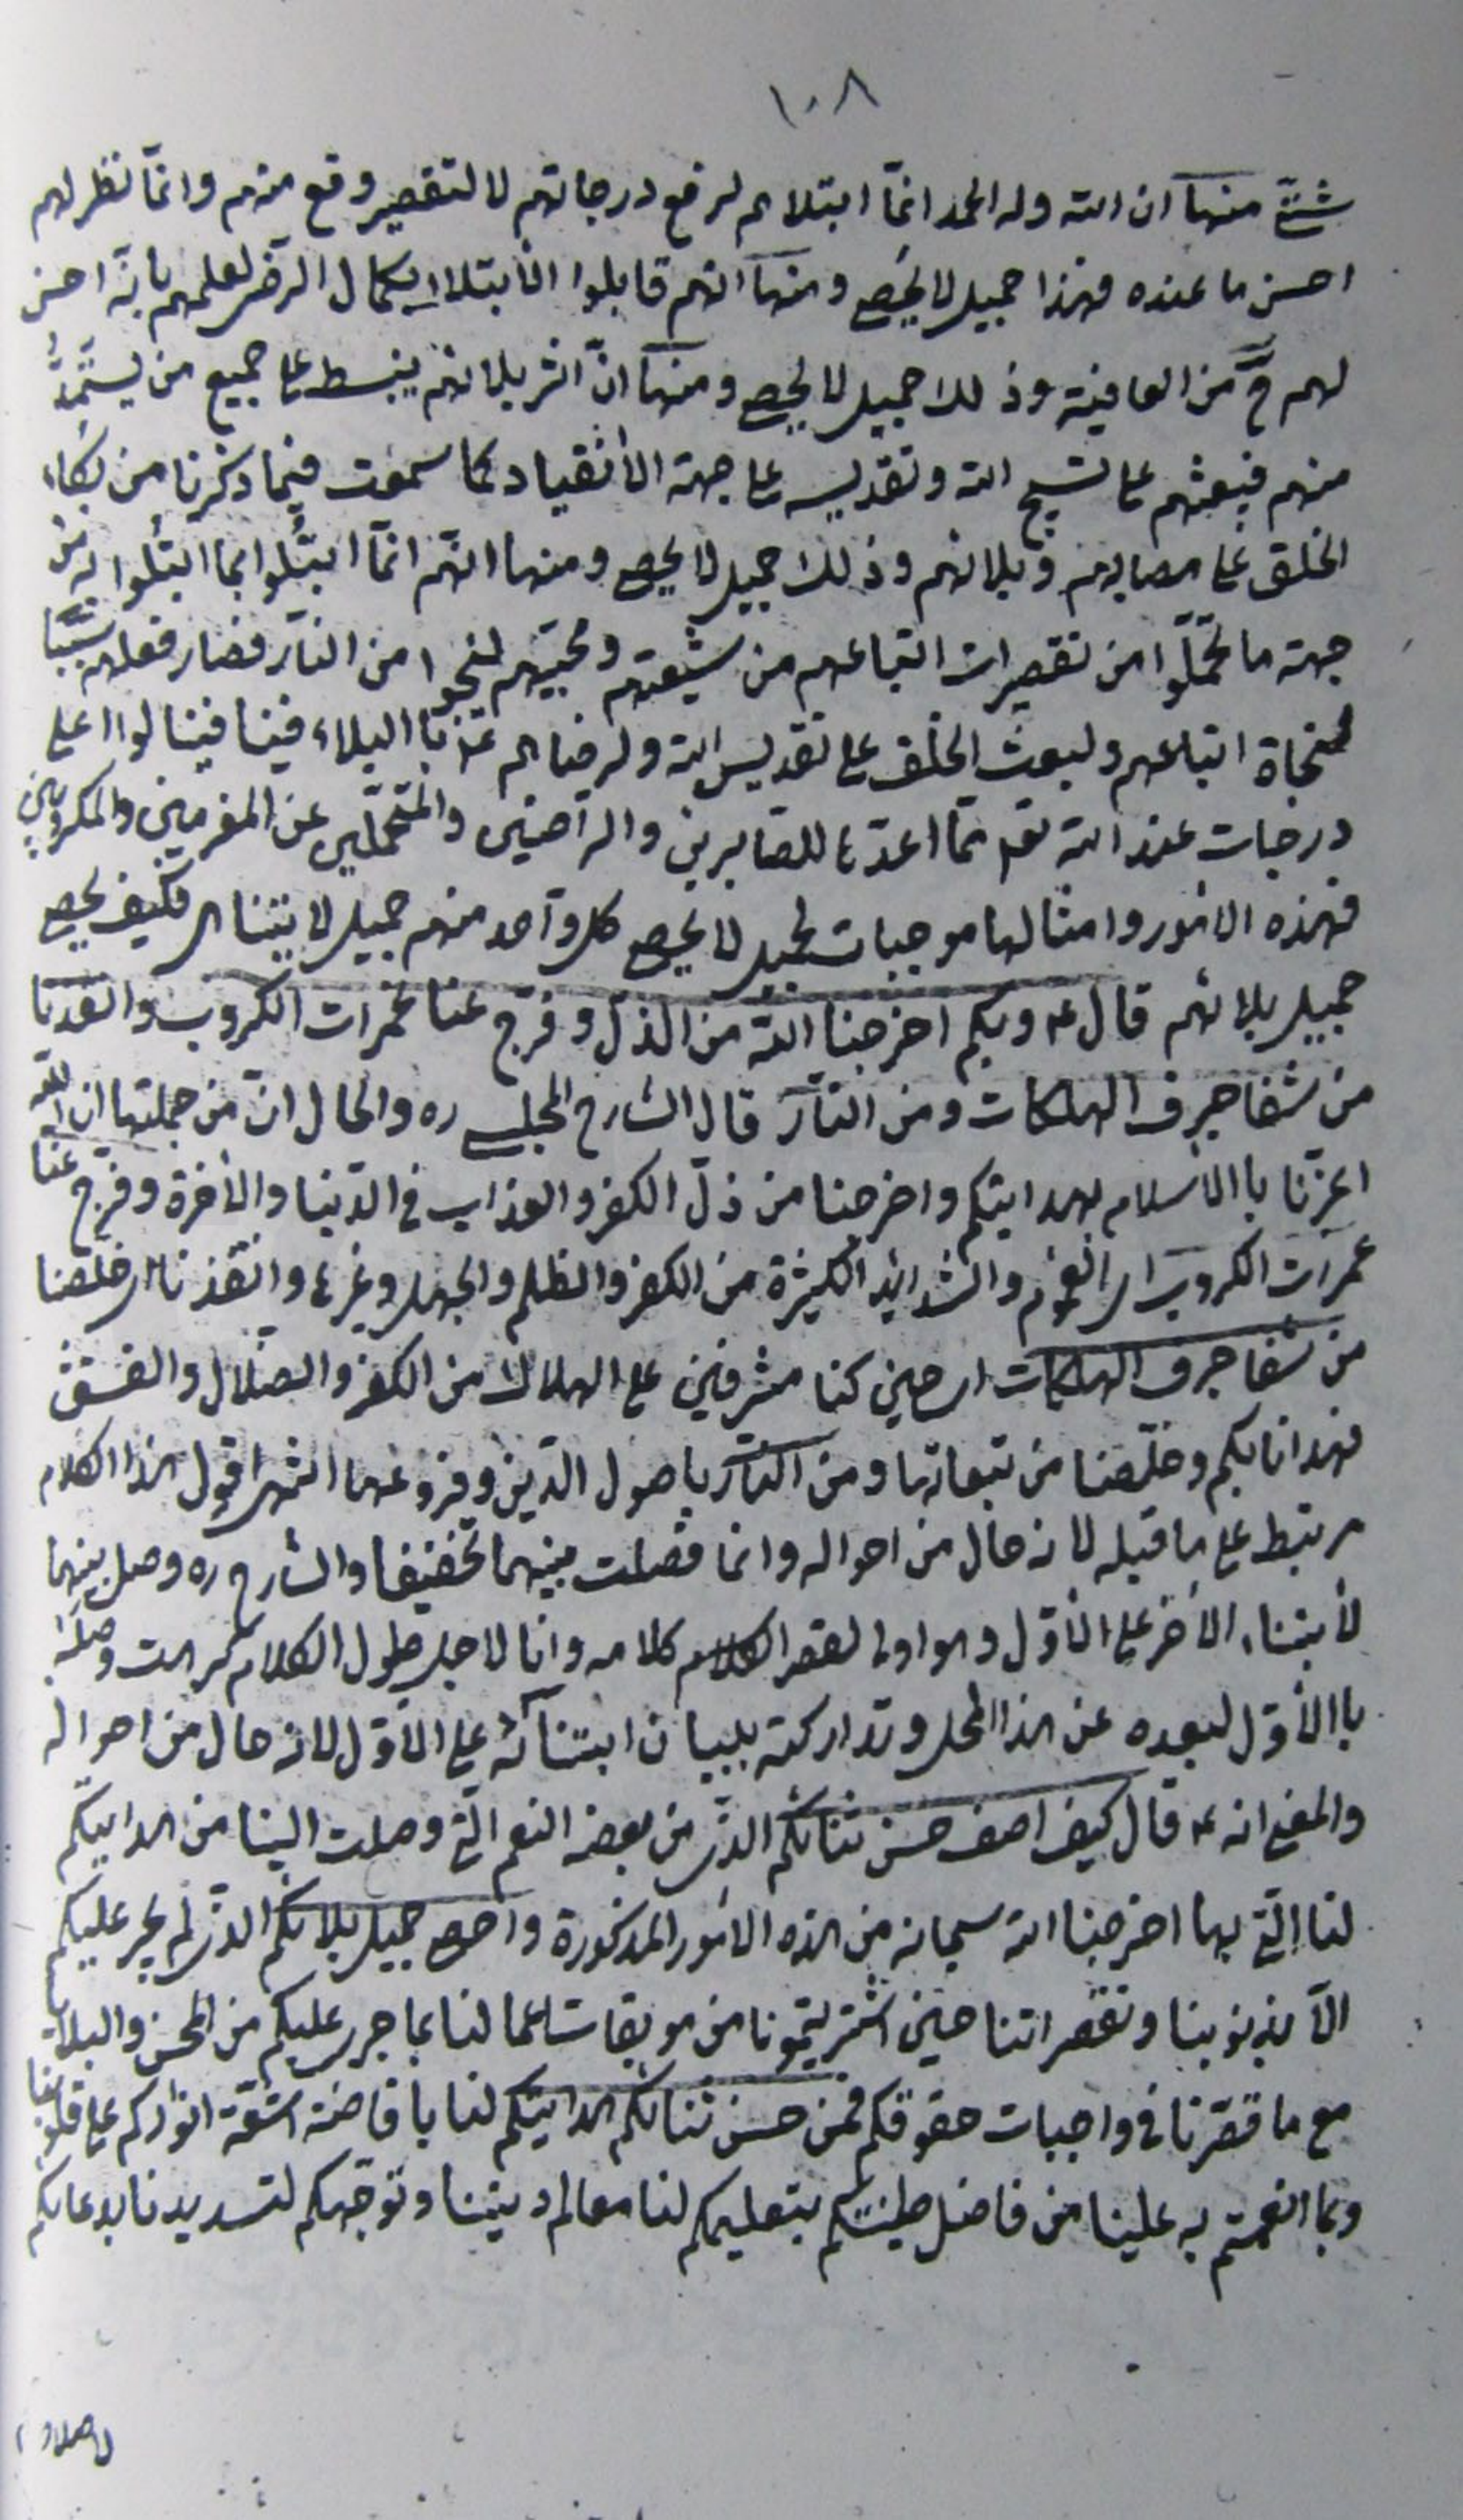 ١٠٨
شتّى منها ان الله وله الحمد انمّا ابتلاهم لرفع درجاتهم لا لتقصير وقع منهم وانمّا نظر لهم
احسن ما عنده فهذا جميل لا يحصى ومنها انهم قابلوا الأبتلاء بكمال الرضى لعلمهم بانّه احسن
لهم من العافية وذلك جميل لا يحصى ومنها انّ اثر بلائهم ينبسط على جميع من يستمدّ
منهم فيبعثهم على تسبيح الله وتقديسه على جهة الأنقياد كما سمعت فيما ذكرنا من بكاء
الخلق على مصابهم وبلائهم وذلك جميل لا يحصى ومنها انهّم انمّا ابتُلوا بما ابتُلوا به من
جهة ما تحمّلوا من تقصيرات اتباعهم من شيعتهم ومحبّيهم لينجوا من النّار فصار فعلهم سببًا
لنجاة اتباعهم ولبعث الخلق على تقديس الله ولرضاهم عنّا البلاء فينا فينالوا اعلى
درجات عند الله تعالى ممّا اعدّها للصّابرين والرّاضين والمتحمّلين عن المغرمين والمكروبين
فهذه الأمور وامثالها موجبات لجميل لا يحصى كل واحد منهم جميل لا يتناهى فكيف يحصى
جميل بلائهم قال ع وبكم اخرجنا الله من الذل وفرّج عنا غمرات الكروب وانقذنا
من شفا جرف الهلكات ومن النّار قال الشارح المجلسي ره والحال انّ من جملتها ان الله
اعزّنا با الأسلام بهدايتكم واخرجنا من ذلّ الكفر والعذاب في الدّنيا والأخرة وفرّج عنّا
غمرات الكروب اى الغموم والشدايد الكثيرة من الكفر والظلم والجهل وغيرها وانقذنا اى خلّصنا
من شفا جرف الهلكات اى حين كنا مشرفين على الهلاك من الكفر والضّلال والفسق
فهدانا بكم وخلّصنا من تبعاتها ومن النّار باصول الدّين وفروعها انتهى اقول هذا الكلام
مرتبط على ما قبله لانه حال من احواله وانما فصلت بينهما تخفيفا والشارح ره وصل بينهما
لأبتناء الأخر على الأوّل وهو اولى لقصر كلامه وانا لاجل طول الكلام كرهت وصله
با الأوّل لبعده عن هذا المحل وتداركته ببيان ابتنآئه على الأوّل لانه حال من احواله
والمعنى انه ع قال كيف اصف حسن ثنائكم الذى من بعض النعم الّتى وصلت الينا من هدايتكم
لنا الّتى بها اخرجنا الله سبحانه من هذه الأمور المذكورة واحصى جميل بلائكم الذى لم يجر عليكم
الّا بذنوبنا وتقصيراتنا حين اشتريتمونا من موبقات اعمالنا بما جرى عليكم من المحن والبلايا
مع ما قصّرنا فى واجبات حقوقكم فمن حسن ثنائكم هدايتكم لنا بافاضة اشعّة انواركم على قلوبنا
وبما انعمتم به علينا من فاضل طينتكم بتعليمكم لنا معالم ديننا وتوجّهكم لتسديدنا بدعائكم